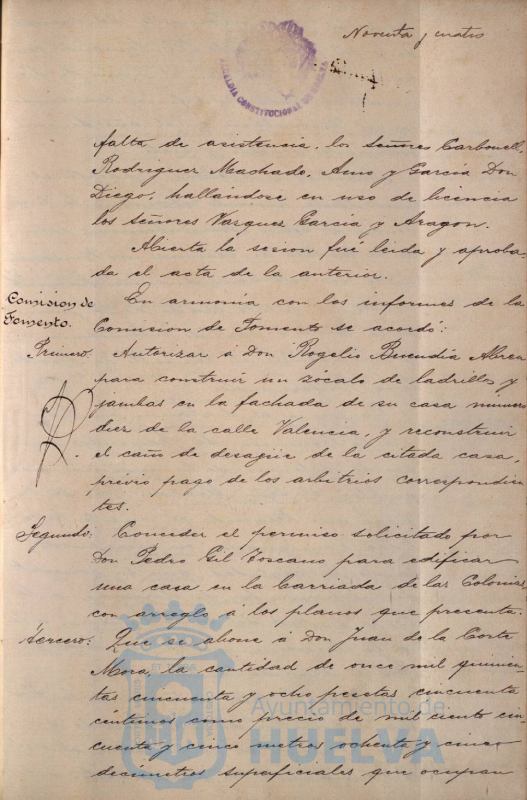 Noventa y cuatro
ALCALDIA CONSTITUCIONAL DE HUELVA
falta de asistencia, los Señores Carbonell,
Rodriguez Machado, Amo y Garcia Don
Diego, hallándose en uso de licencia
los Señores Vazquez Garcia y Aragon.
Abierta la sesion fué leida y aproba-
da el acta de la anterior.
Comision de
Fomento.
En armonia con los informes de la
Comision de Fomento se acordó:
Primero: Autorizar á Don Rogelio Buendia Abrea
para construir un zócalo de ladrillos y
jambas en la fachada de su casa numero
diez de la calle Valencia, y reconstruir
el caño de desagüe de la citada casa,
prévio pago de los arbitrios correspondien-
tes.
Segundo: Conceder el permiso solicitado por
Don Pedro Gil Toscano para edificar
una casa en la Barriada de las Colonias
con arreglo á los planos que presenta.
Tercero: Que se abone á Don Juan de la Corte
Mora, la cantidad de once mil quinien-
tas cincuenta y ocho pesetas cincuenta
céntimos como precio de mil ciento cin-
cuenta y cinco metros ochenta y cinco
decímetros superficiales que ocupan
Ayuntamiento de
HUELVA